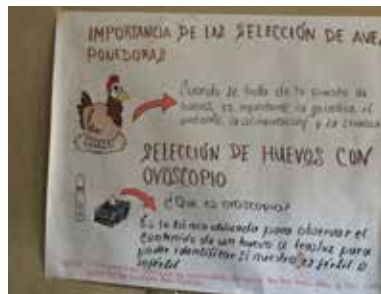 IMPORTANCIA DE LAS SELECCIÓN DE AVE
PONEDORAS
Cuando se trata de la puesta de
huevos, es importante la genética, el
ambiente, la alimentación y la crianza
SELECCIÓN DE HUEVOS CON
OVOSCOPIO
¿Que es ovoscopio?
Es la técnica utilizada para observar el
contenido de un huevo a trasluz para
poder identificar si nuestro es fértil o
infértil